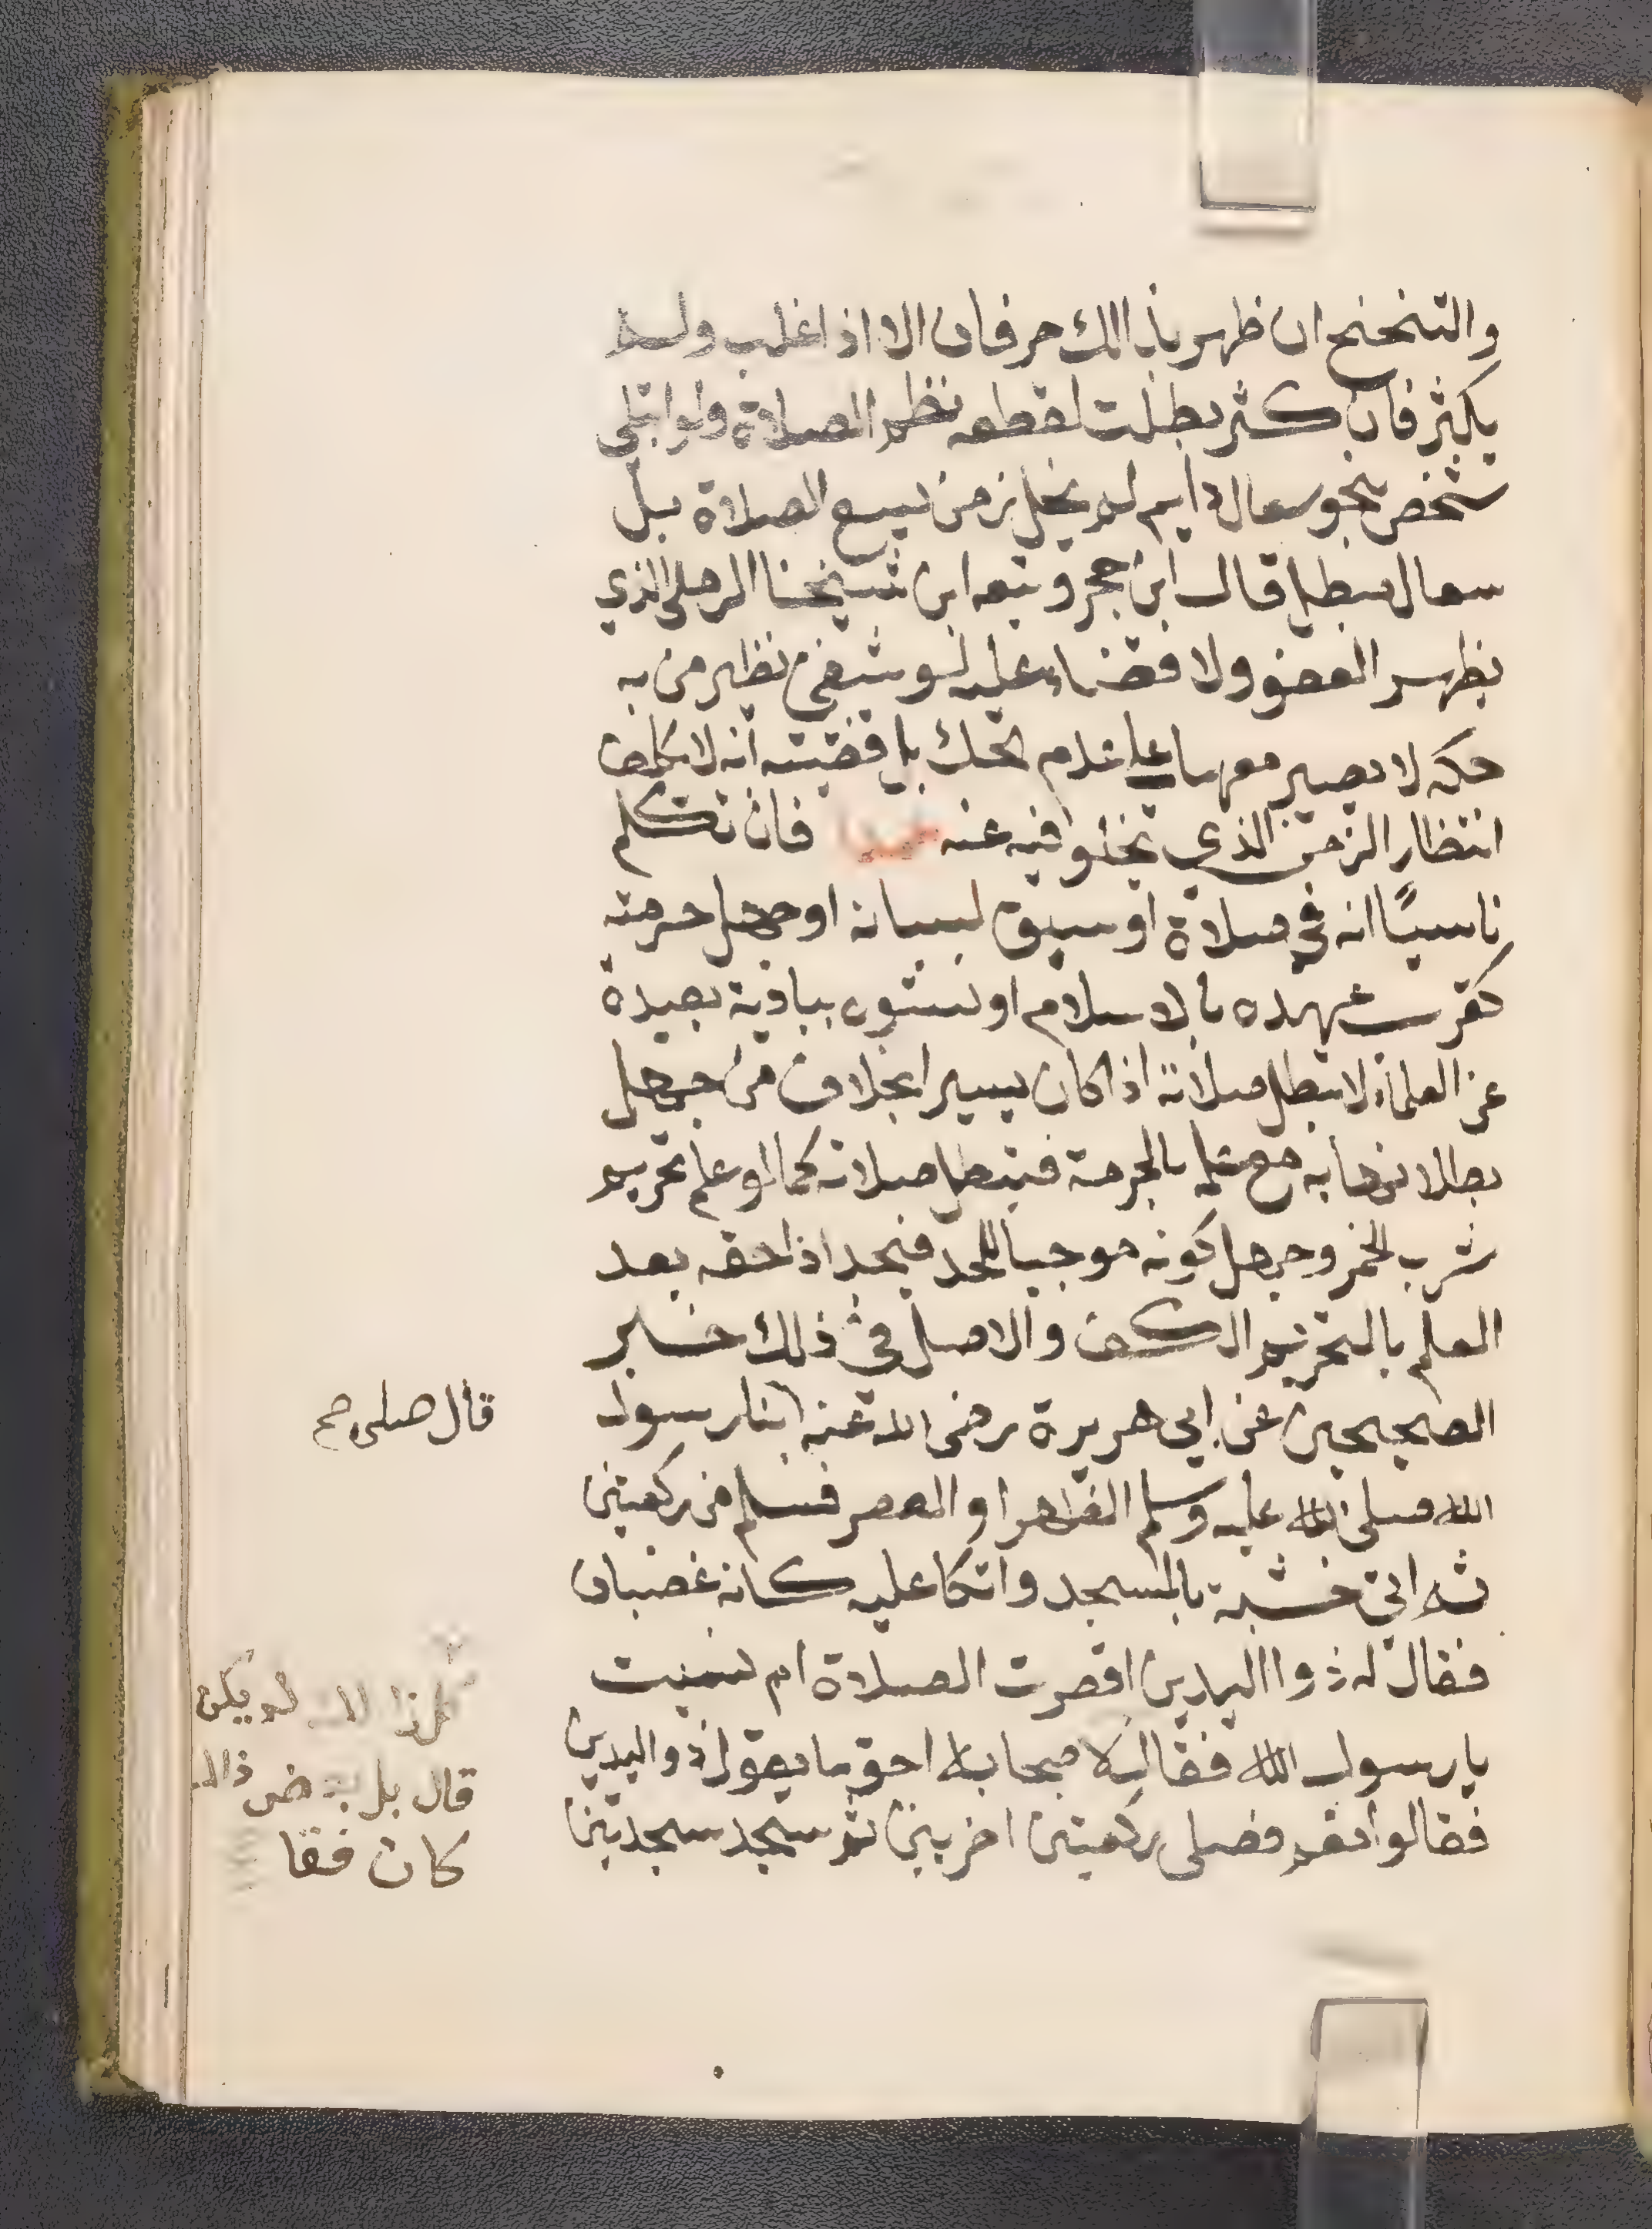 والتنحنح ان ظهر بذالك حرفان الا اذا غلب ولم
يكثر فان كثر بطلت لقطعه نظم الصلاة ولو ابتلي
شخص بنحو سعال دايم لم يخل زمن يسع الصلاة بلا
سعال مبطل قال ابن حجر وتبعه ابن شيخنا الرملي الذي
يظهر العفو ولا قضاء عليه لو شفي نظير من به
حكه لا يصير معها على عدم الحك بل قضيته انه لا يكلف
انتظار الزمن الذي تخلو فيه عنه فان تكلم
ناسيًا انه في صلاة او سبق لسانه او جهل حرمته
كقرب عهده بالاسلام او نشوه ببادية بعيدة
عن العلماء لا تبطل صلاته اذا كان يسيرا بخلاف من جهل
بطلانها به مع علمه بالحرمة فتبطل صلاته كما لو علم تحريم
شرب الخمر وجهل كونه موجبا للحد فيحد اذ احقه بعد
العلم بالتحريم الكف والاصل في ذلك خبر
الصحيحين عن ابي هريرة رضى الله عنه ابنا رسول
الله صلى الله عليه وسلم الظهر او العصر فسلم من ركعتين
ثم اتي خشبة بالمسجد واتكا عليه كانه غضبان
فقال له ذوا اليدين اقصرت الصلاة ام نسيت
يا رسول الله فقال لاصحابه احق ما يقول ذو اليدين
فقالوا نعم فصلى ركعتين اخريين ثم سجد سجدتين
قال صلى صح
كل ذالك لم يكن
قال بل بعض ذالك
كان فقا